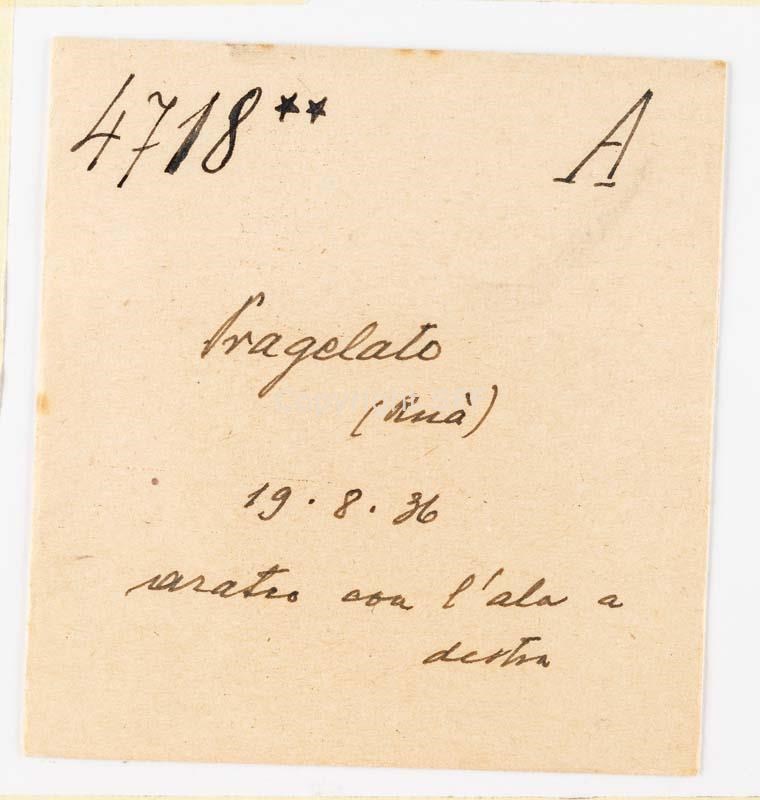 4718** A
Pragelato
(Ruà)
19.8.36
aratro con l'ala a
destra